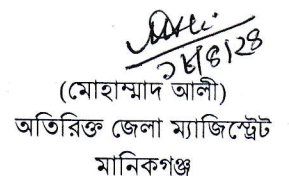 ২৮/৪/২৪
(মোহাম্মাদ আলী)
অতিরিক্ত জেলা ম্যাজিস্ট্রেট
মানিকগঞ্জ